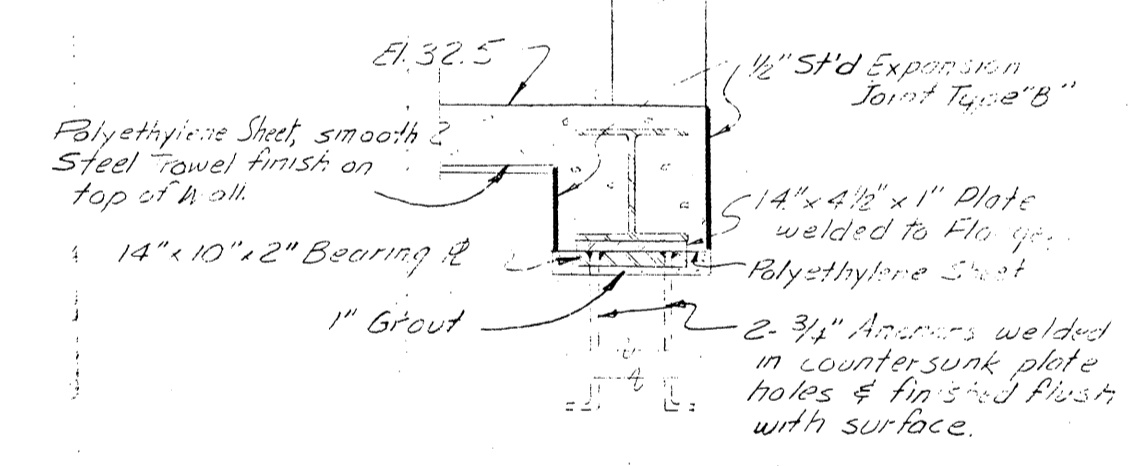 El. 32.5
1/2" St'd Expansion
Joint Type "B"
Polyethylene Sheet, smooth
Steel Trowel finish on
top of Wall.
14" x 4 1/2" x 1" Plate
welded to Flange.
14" x 10" x 2" Bearing ℞
Polyethylene Sheet
1" Grout
2- 3/4" Anchors welded
in countersunk plate
holes & finished flush
with surface.